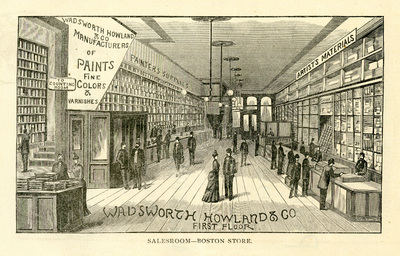 WADSWORTH, HOWLAND
& CO
MANUFACTURERS
OF
PAINTS
FINE
COLORS
&
VARNISHES
PAINTER'S SUPPLIES
ARTISTS MATERIALS
TO
WADSWORTH, HOWLAND & CO
FIRST FLOOR
SALESROOM—BOSTON STORE.